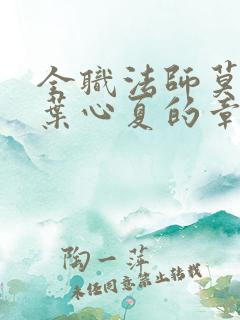 全职法师莫
葉心夏的章
陶一萍
未经同意禁止转载